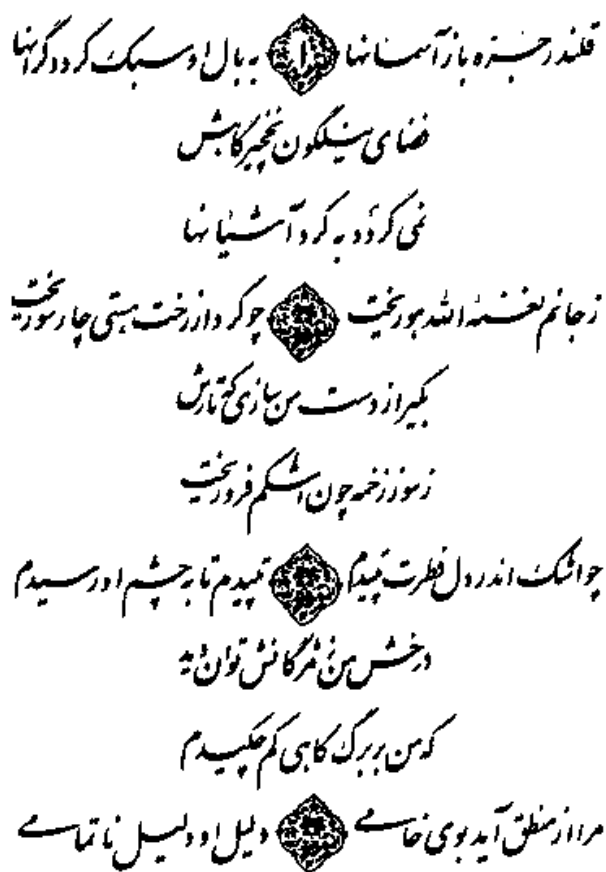 قلندر جره باز آسمانها به بال او سبک گردد گرانها
فضای نیلگون نخچیرگاهش
نمی گردد به گرد آشیانها
ز جانم نغمهٔ الله هو ریخت چو گرد از رخت هستی چار سو ریخت
بگیر از دست من سازی که تارش
ز سوز زخمه چون اشکم فرو ریخت
چو اشک اندر دل فطرت تپیدم تپیدم تا به چشم او رسیدم
درخش من ز مژگانش توان دید
که من بر برگ کاهی کم چکیدم
مرا از منطق آید بوی خامی دلیل او دلیل ناتمامی